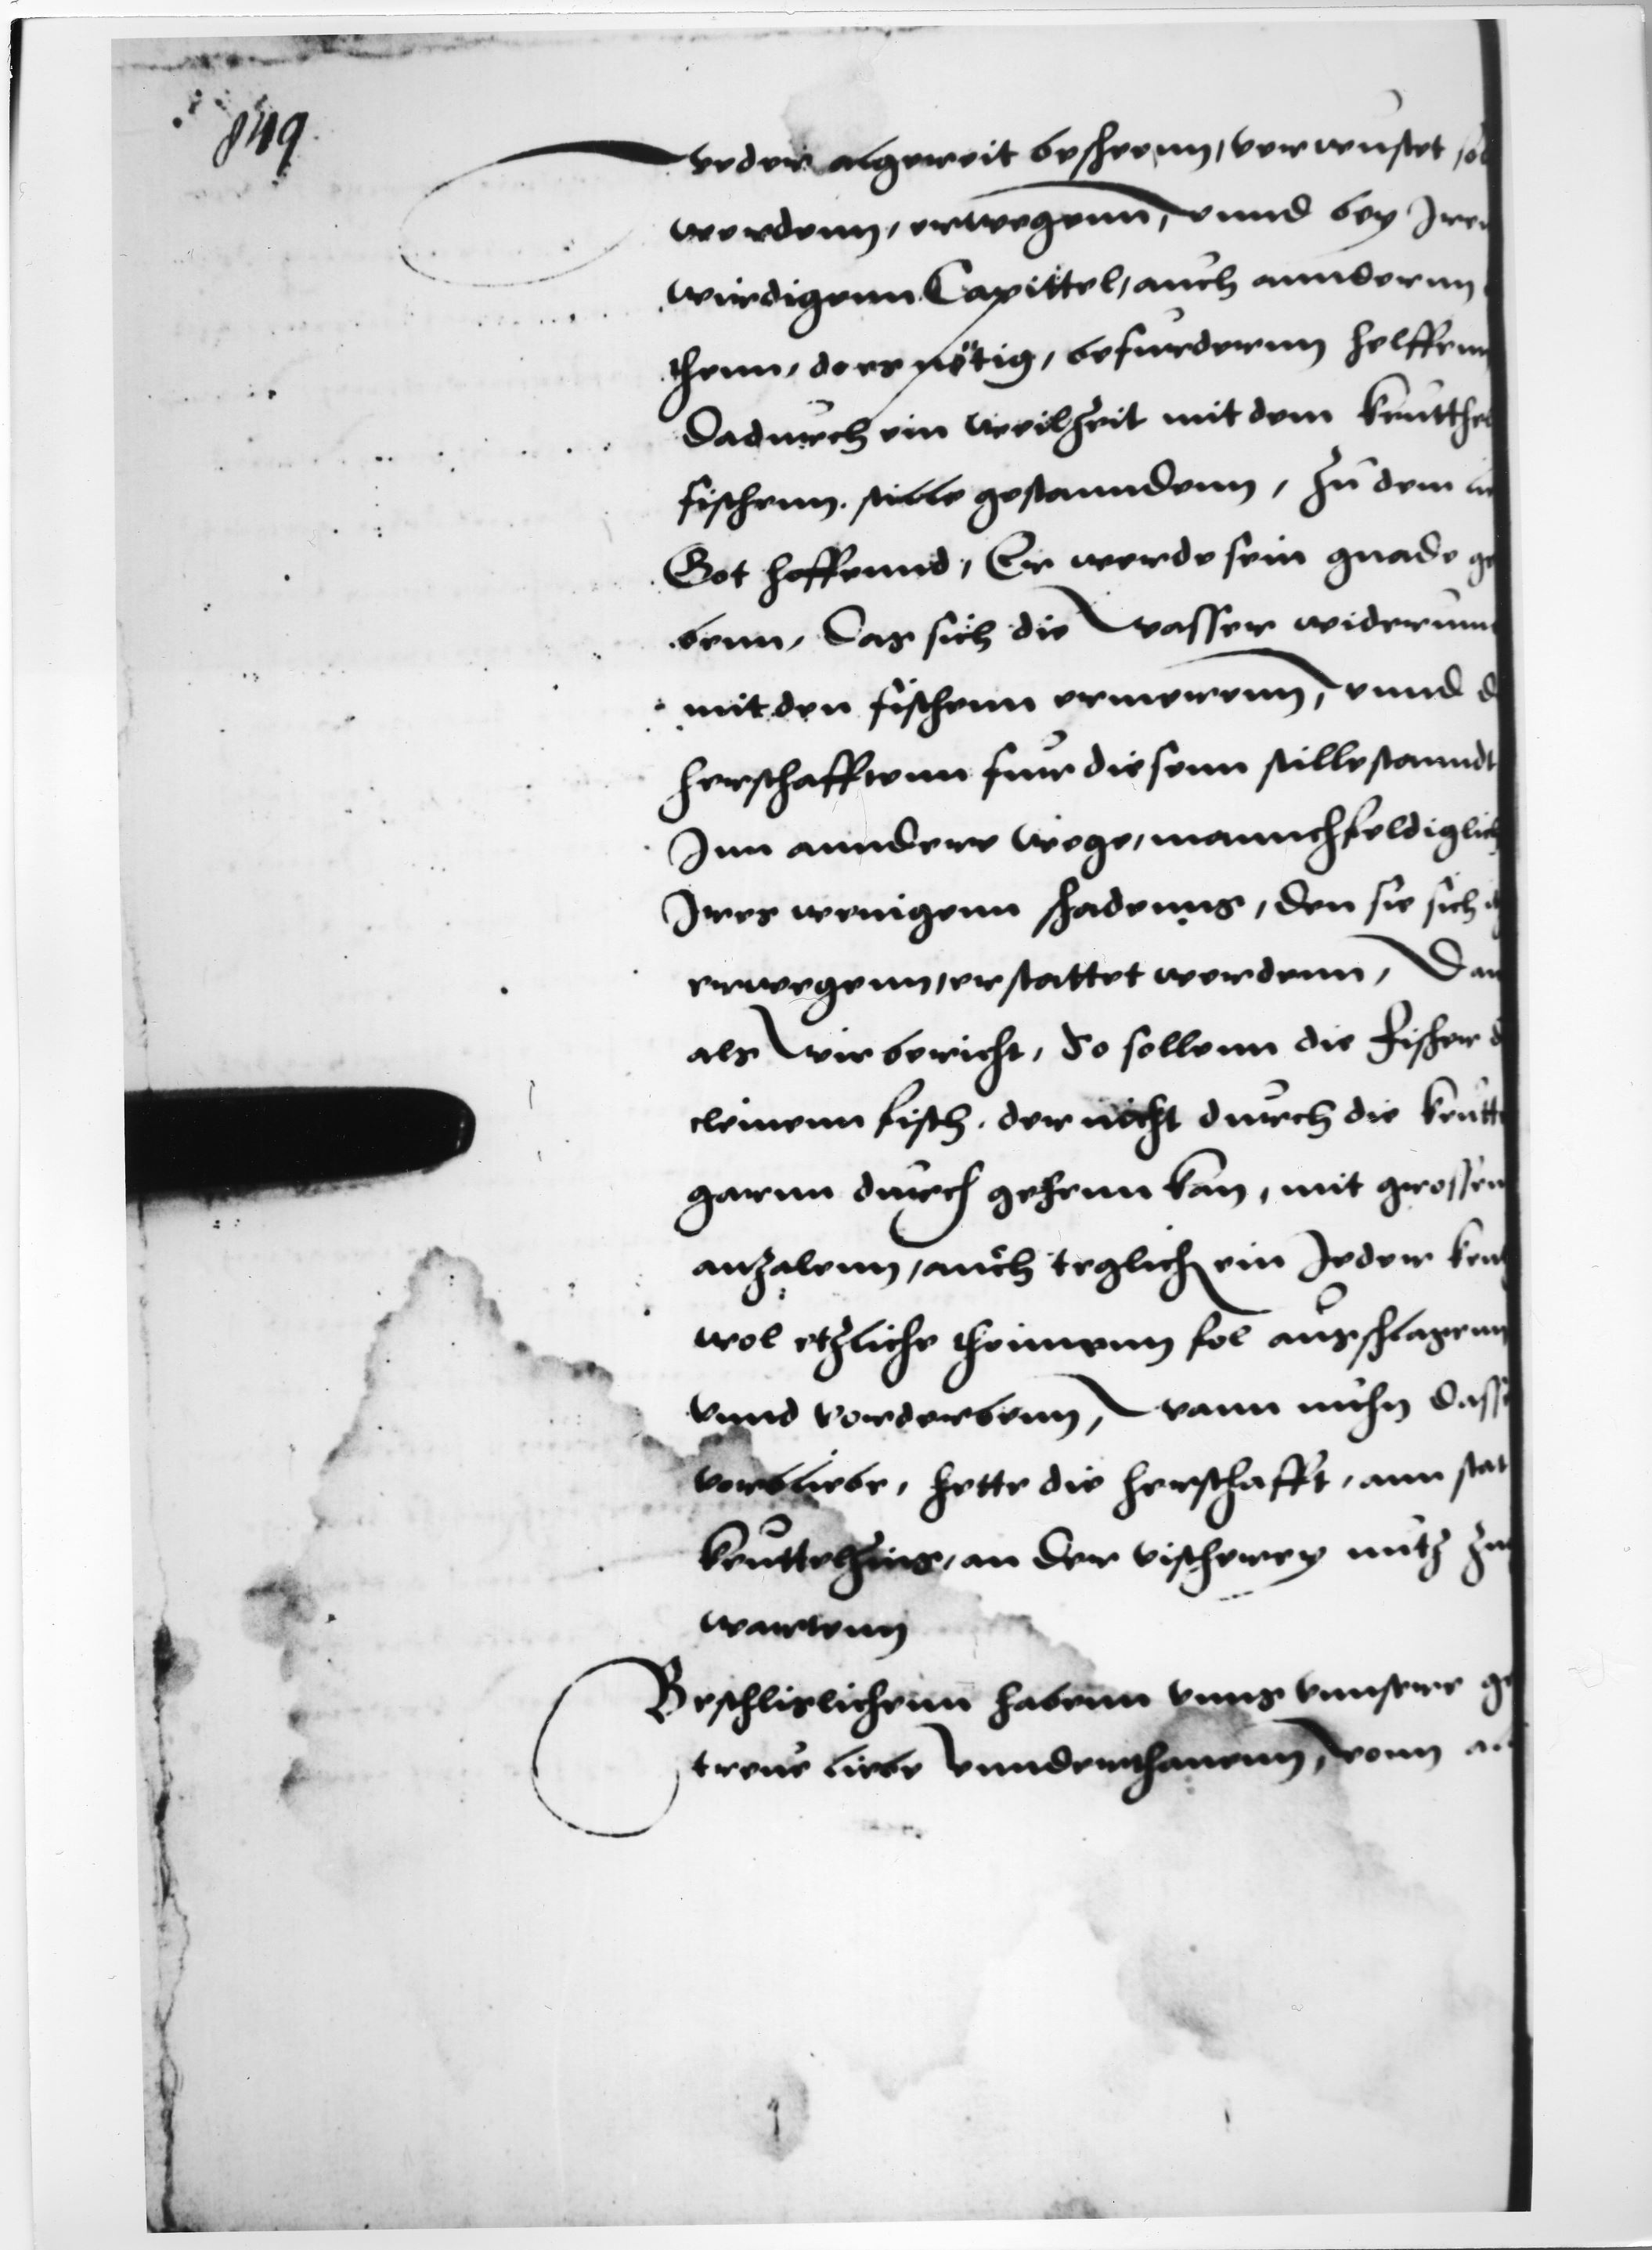 849.
weder algereit beschenn, verwustet, sol
werdenn, erwegenn, vnnd bey Irer
wirdigenn Capittel, auch annderenn
thenn, do es nötig, befurdernn helffenn
Dadurch ein weilzeit mit dem keutthel
fischenn stille gestanndenn, Zu dem
Got hoffennd, Er werde sein gnade ge
benn, Das sich die wasser widerumb
mit den fischenn ermerenn, vnnd d
herschafftenn fur diesenn stillestanndt
Inn anndere wege, mannchfeldiglich
Ires wenigenn schadenns, den sie sich
erwegenn, erstattet werdenn, Dan
als wir bericht, So sollenn die Fischer d
cleinenn fisch, der nicht durch die keutt
garnn durch gehenn kan, mit grossen
anzalenn, auch teglich ein Jeder keut
wol etzliche thonnenn fol ausschlagenn
vnnd vorderbenn, wann nuhn dasse
vorbliebe, hette die herschafft, ann stat
keuttelzins, an der vischerey nutz zu
wartenn
Beschlislichenn habenn vnns vnnsere ge
treue liebe vnnderthanenn, vonn